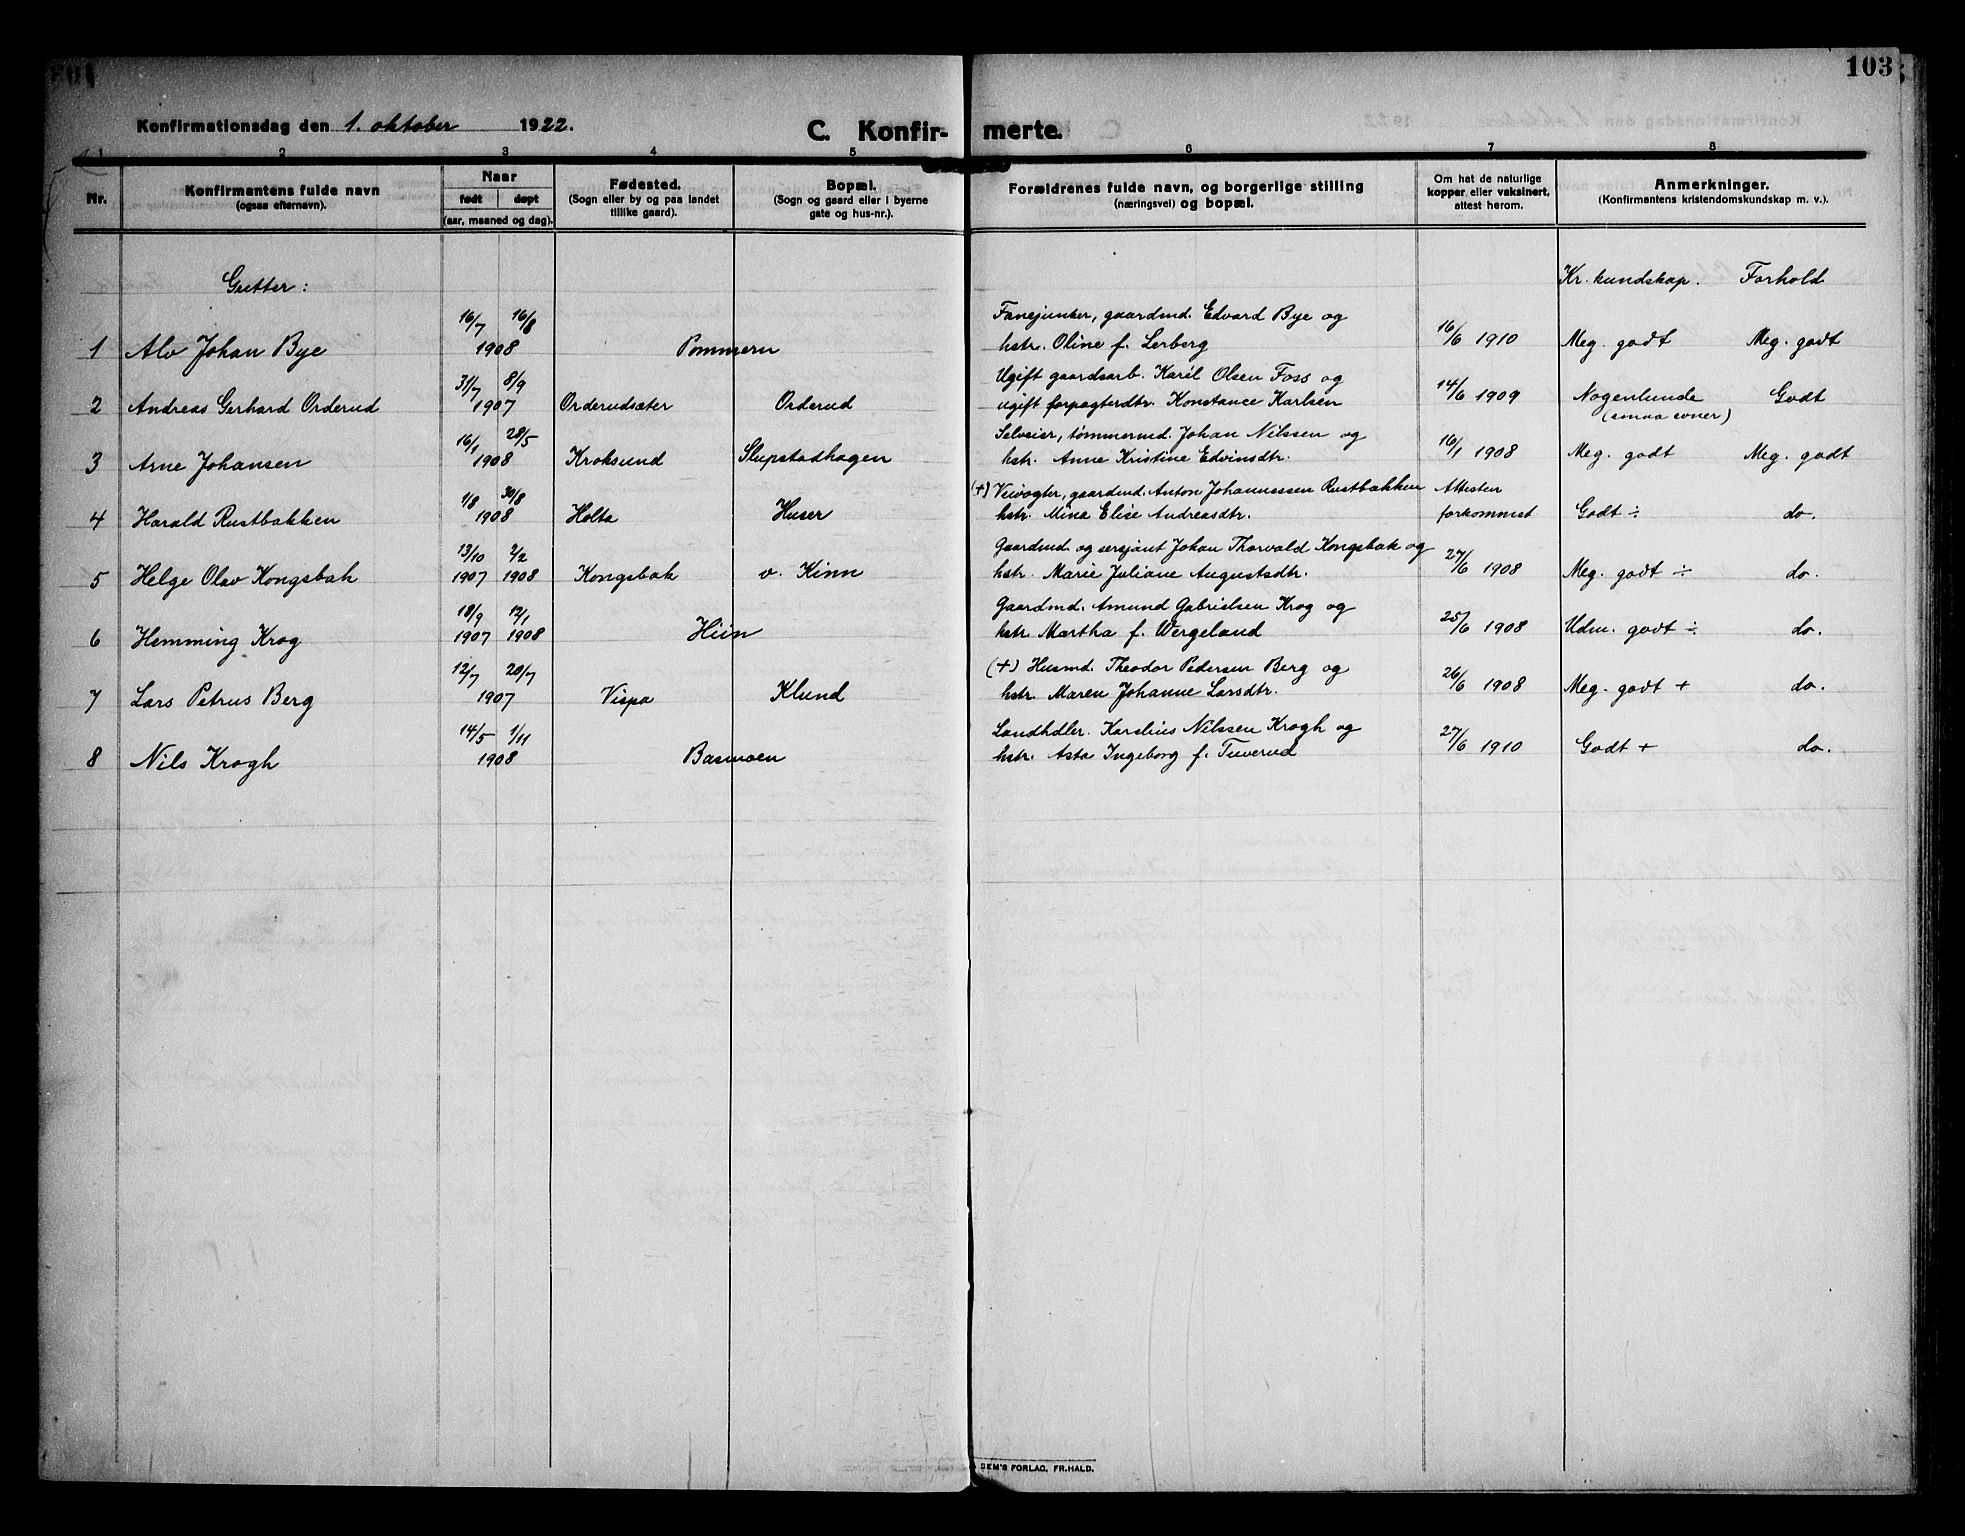 103
Konfirmationsdag den 1. oktober 1922.
C. Konfirmerte.
1 2 3 4 5 6 7 8
Nr.
Konfirmantens fulde navn
(ogsaa efternavn).
Naar
født døpt
(aar, maaned og dag).
Fødested.
(Sogn eller by og paa landet
tillike gaard).
Bopæl.
(Sogn og gaard eller i byerne
gate og hus-nr.).
Forældrenes fulde navn, og borgerlige stilling
(næringsvei) og bopæl.
Om hat de naturlige
kopper eller vaksinert,
attest herom.
Anmerkninger.
(Konfirmantens kristendomskundskap m. v.).
Gutter:
Kr. kundskap. Forhold
16/7 16/8 Fanejunker, gaardmd. Edvard Bye og
1 Alv Johan Bye 1908 Pommern hstr. Oline f. Lerberg 16/6 1910 Meg. godt Meg. godt
31/7 8/9 Ugift gaardsarb. Karil Olsen Foss og
2 Andreas Gerhard Orderud 1907 Orderudsæter Orderud ugift forpagterdtr. Konstance Karlsen 14/6 1909 Nogenlunde Godt
(smaa evner)
16/1 28/5 Selveier, tømmermd. Johan Nilssen og
3 Arne Johansen 1908 Kroksund Slupstadhagen hstr. Anne Kristine Edvinsdtr. 16/1 1908 Meg. godt Meg. godt
1/8 30/8 (+) Veivogter, gaardmd. Anton Johannessen Rustbækken Attesten
4 Harald Rustbakken 1908 Holta Huser hstr. Mina Elise Andreasdtr. forkommet Godt ÷ do.
13/10 2/2 Gaardmd. og sersjant Johan Thorvald Kongsbak og
5 Helge Olav Kongsbak 1907 1908 Kongsbak v. Kinn hstr. Marie Juliane Augustsdtr. 27/6 1908 Meg. godt ÷ do.
18/9 12/1 Gaardmd. Amund Gabrielsen Krog og
6 Hemming Krog 1907 1908 Hiin hstr. Martha f. Wergeland 25/6 1908 Udm. godt ÷ do.
12/7 20/7 (+) Husmd. Theodor Pedersen Berg og
7 Lars Petrus Berg 1907 Vispa Klund hstr. Maren Johanne Larsdtr. 26/6 1908 Meg. godt + do.
14/5 1/11 Landhdler. Karelius Nilssen Krogh og
8 Nils Krogh 1908 Basmoen hstr. Asta Ingeborg f. Tuverud 27/6 1910 Godt + do.
DEM'S FORLAG, FR. HALD.